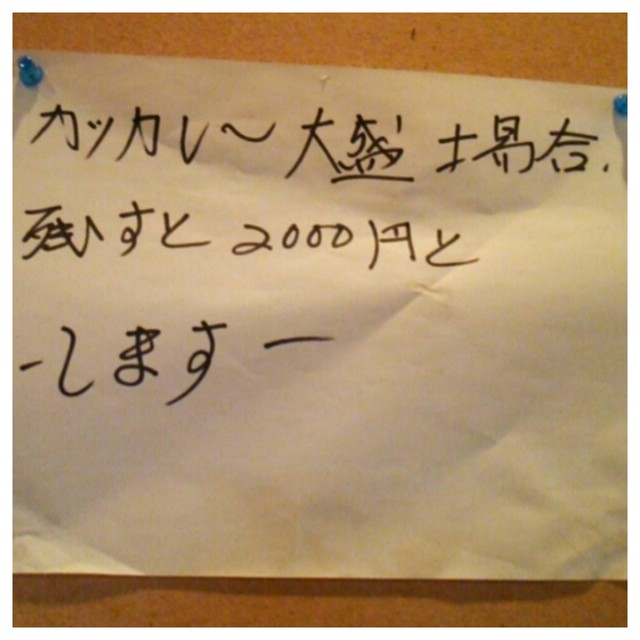 カツカレ〜大盛場合.
残すと2000円と
-します-